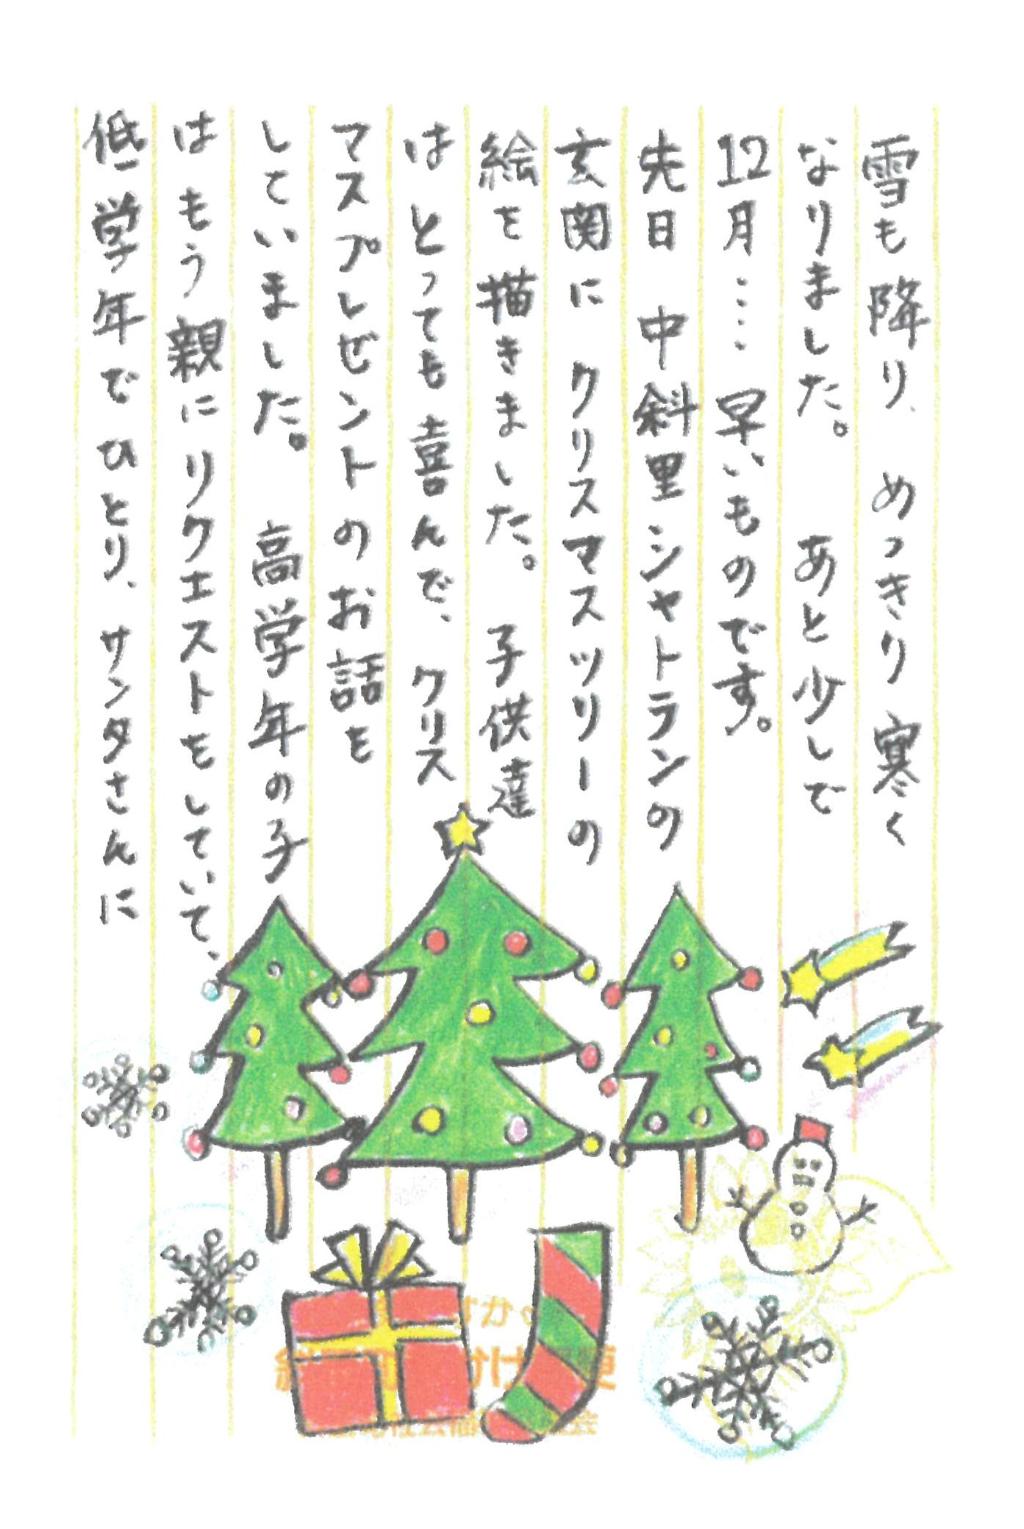 雪も降り、めっきり寒く
なりました。 あと少しで
12月‥‥早いものです。
先日 中斜里シャトランの
玄関に クリスマスツリーの
絵を描きました。 子供達
はとっても喜んで、クリス
マスプレゼントのお話を
していました。 高学年の子
はもう親にリクエストをしていて、
低学年でひとり、サンタさんに